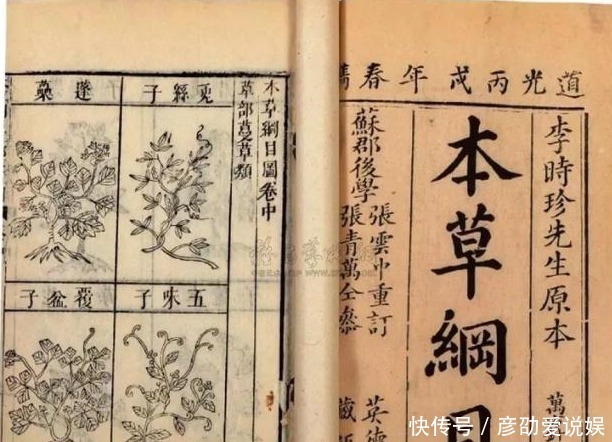 道光丙戌年春鐫
李時珍先生原本
本草綱目
蘇郡後學
張雲中重訂
張青萬仝參
英德
藏
本草綱目圖卷中
草部蔓草類
兎絲子
蓬蘽
五味子
覆盆子
快传号 / 彦劭爱说娱